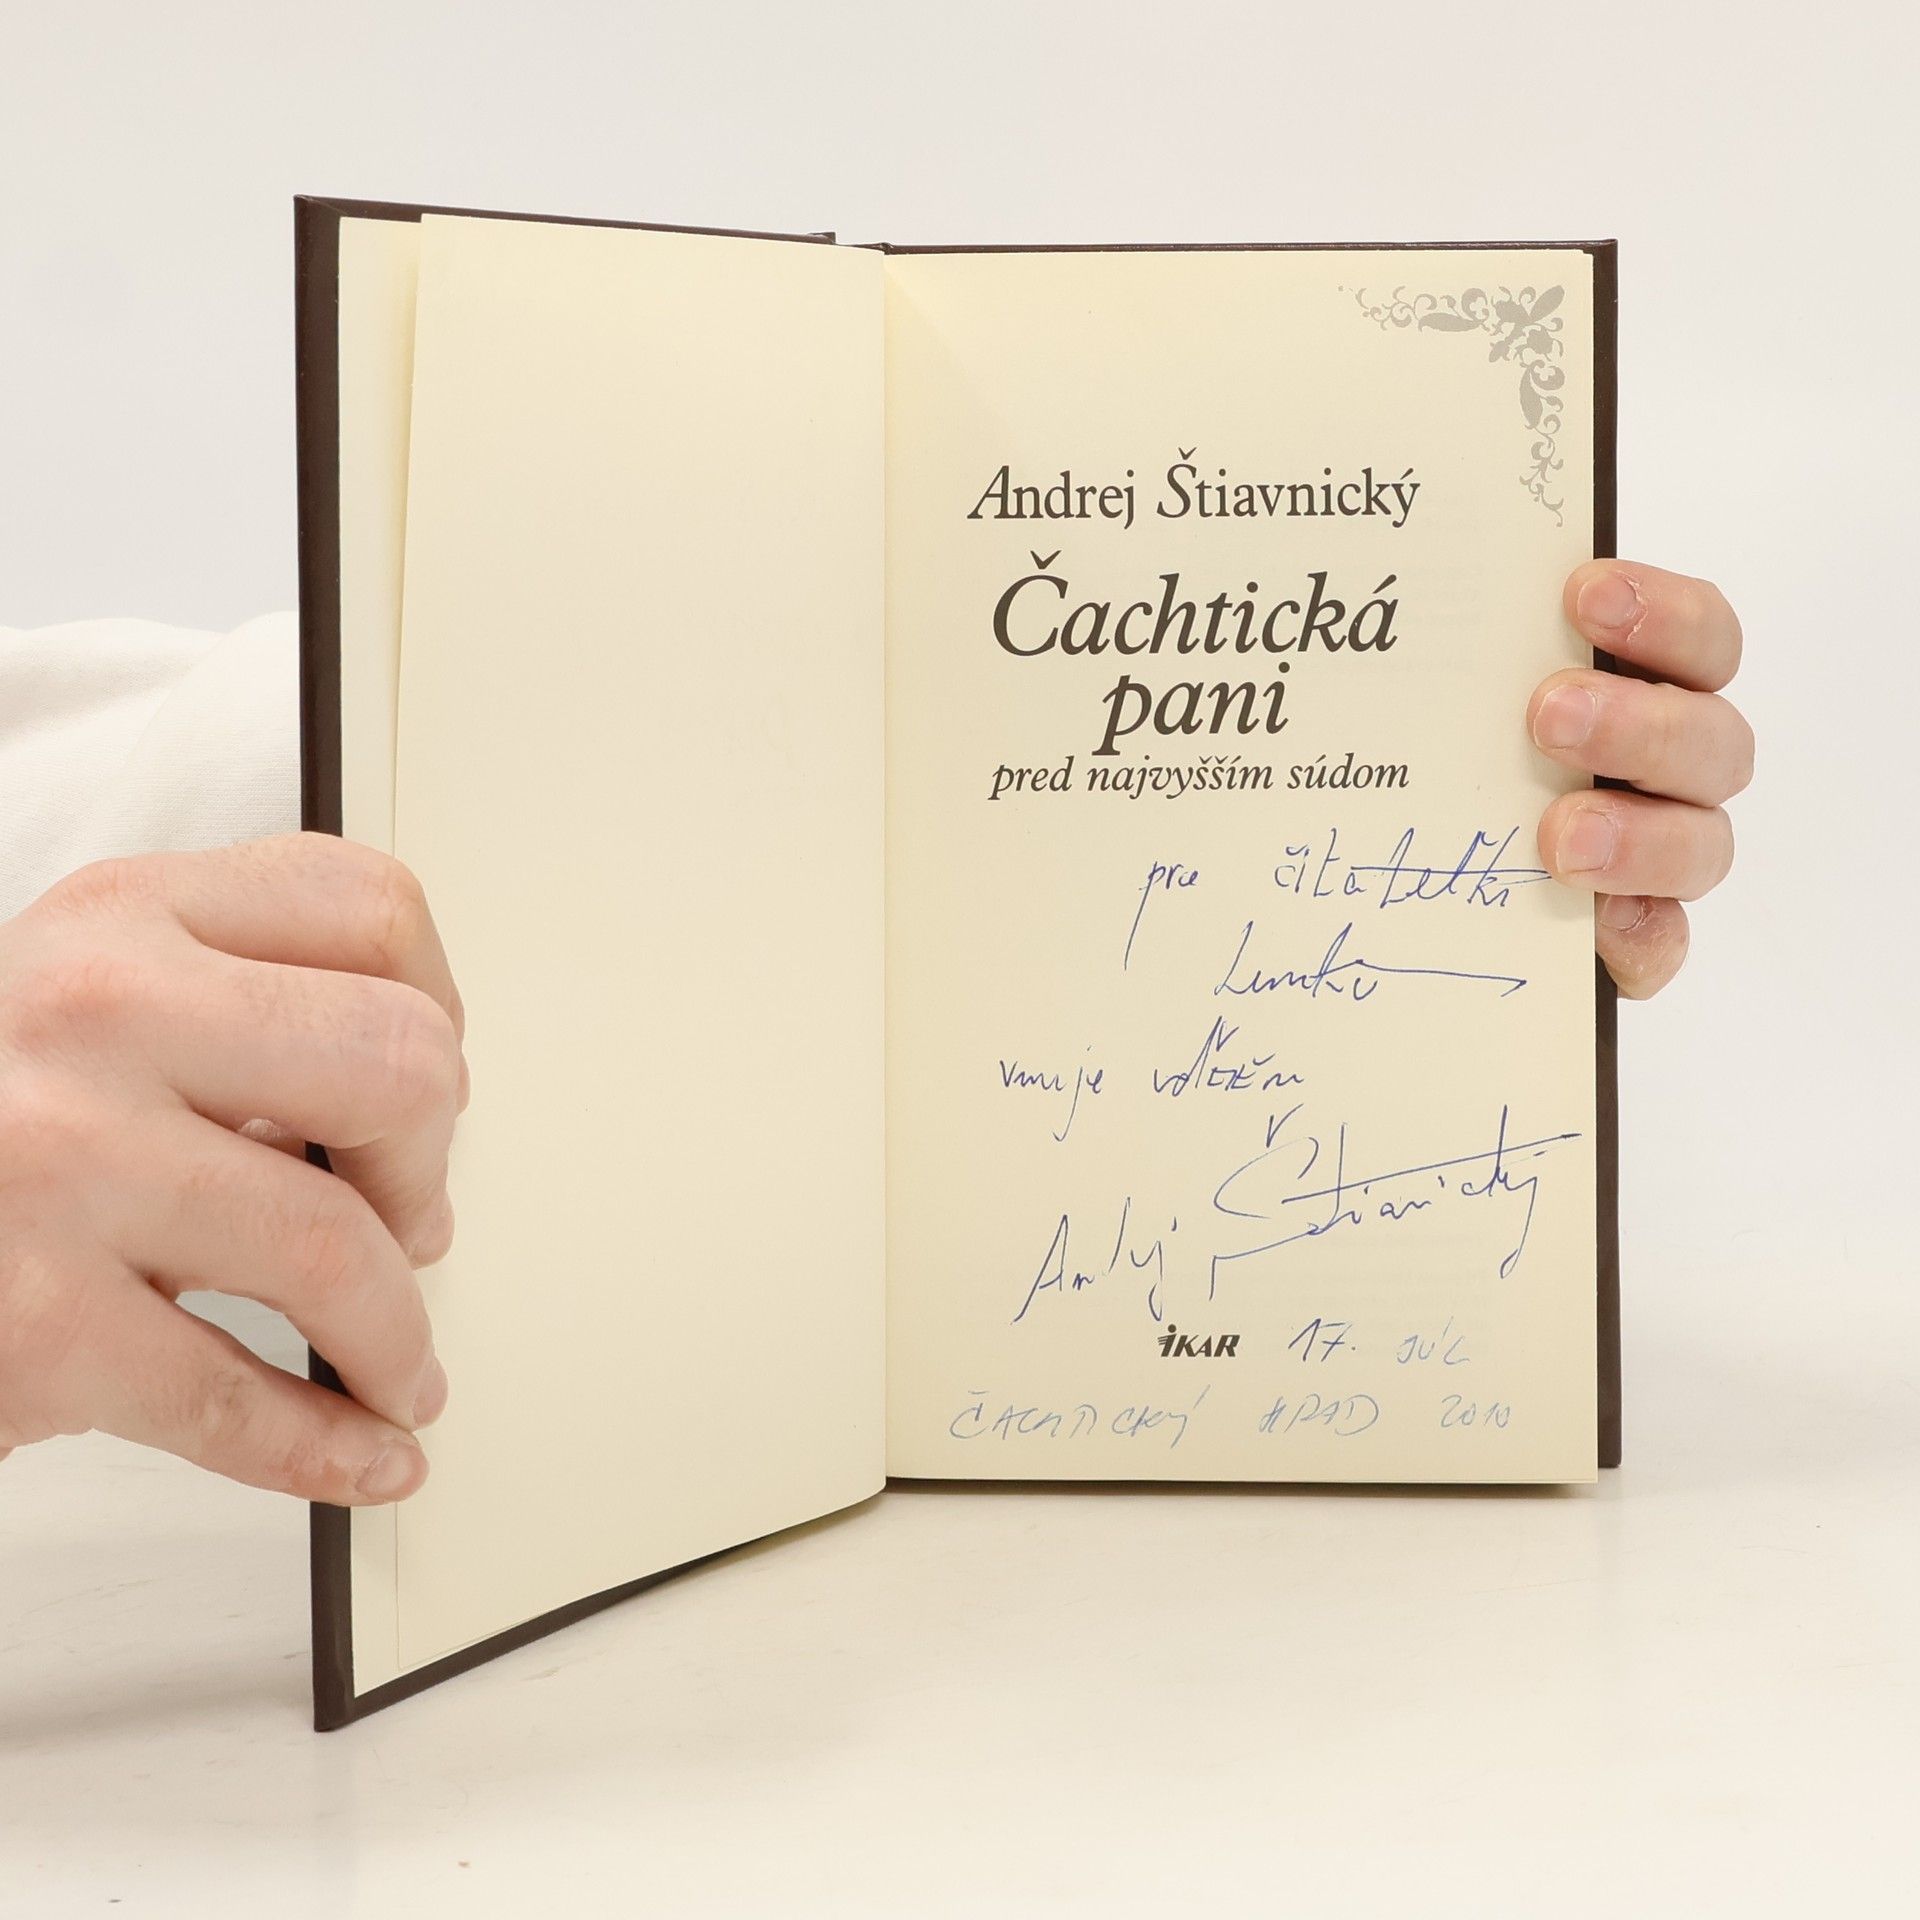 Andrej Štiavnický
Čachtická
pani
pred najvyšším súdom
pre čitateľku
Lenku
venuje
Andrej Štiavnický
IKAR 17. JÚL
ČACHTICKÝ HRAD 2010